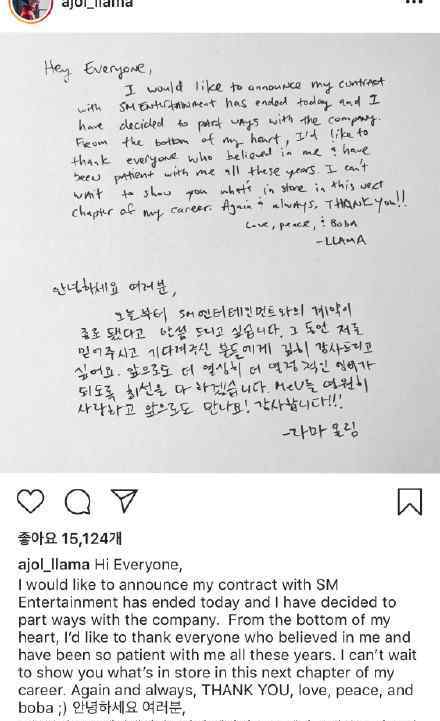 ajol_llama
Hey Everyone,
I would like to announce my contract
with SM Entertainment has ended today and I
have decided to part ways with the company.
From the bottom of my heart, I'd like to
thank everyone who believed in me & have
been patient with me all these years. I can't
wait to show you what's in store in this next
chapter of my career. Again & always, THANK YOU!!
Love, peace, & Boba
-LLAMA
안녕하세요 여러분,
오늘부터 SM엔터테인먼트와의 계약이
종료 됐다고 말씀 드리고 싶습니다. 그 동안 저를
믿어주시고 기다려주신 분들에게 깊히 감사드리고
싶어요. 앞으로도 더 열심히 더 열정적인
되도록 최선을 다 하겠습니다. MeU들 영원히
사랑하고 앞으로도 만나요! 감사합니다!!!
-라마 올림
좋아요 15,124개
ajol_llama Hi Everyone,
I would like to announce my contract with SM
Entertainment has ended today and I have decided to
part ways with the company.  From the bottom of my
heart, I'd like to thank everyone who believed in me and
have been so patient with me all these years. I can't wait
to show you what's in store in this next chapter of my
career. Again and always, THANK YOU, love, peace, and
boba ;) 안녕하세요 여러분,